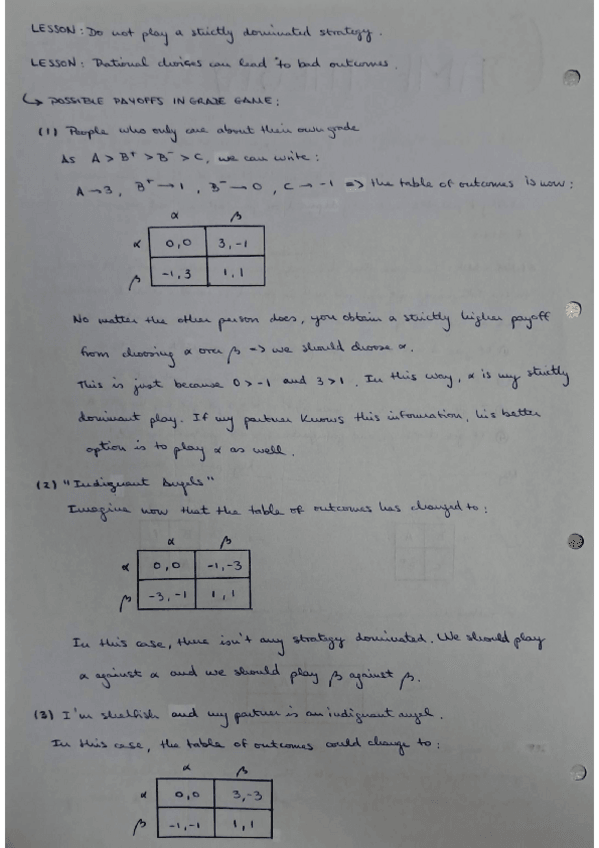 LESSON: Do not play a strictly dominated strategy.
LESSON: Rational choices can lead to bad outcomes.
↳ POSSIBLE PAYOFFS IN GRADE GAME:
(1) People who only care about their own grade
As A > B+ > B- > C, we can write:
A → 3, B+ → 1, B- → 0, C → -1 => the table of outcomes is now:
α β
α 0,0 3,-1
β -1,3 1,1
No matter the other person does, you obtain a strictly higher payoff
from choosing α over β => we should choose α.
This is just because 0 > -1 and 3 > 1. In this way, α is my strictly
dominant play. If my partner knows this information, his better
option is to play α as well.
(2) "Indignant Angels"
Imagine now that the table of outcomes has changed to:
α β
α 0,0 -1,-3
β -3,-1 1,1
In this case, there isn't any strategy dominated. We should play
α against α and we should play β against β.
(3) I'm shelfish and my partner is an indignant angel.
In this case, the table of outcomes could change to:
α β
α 0,0 3,-3
β -1,-1 1,1